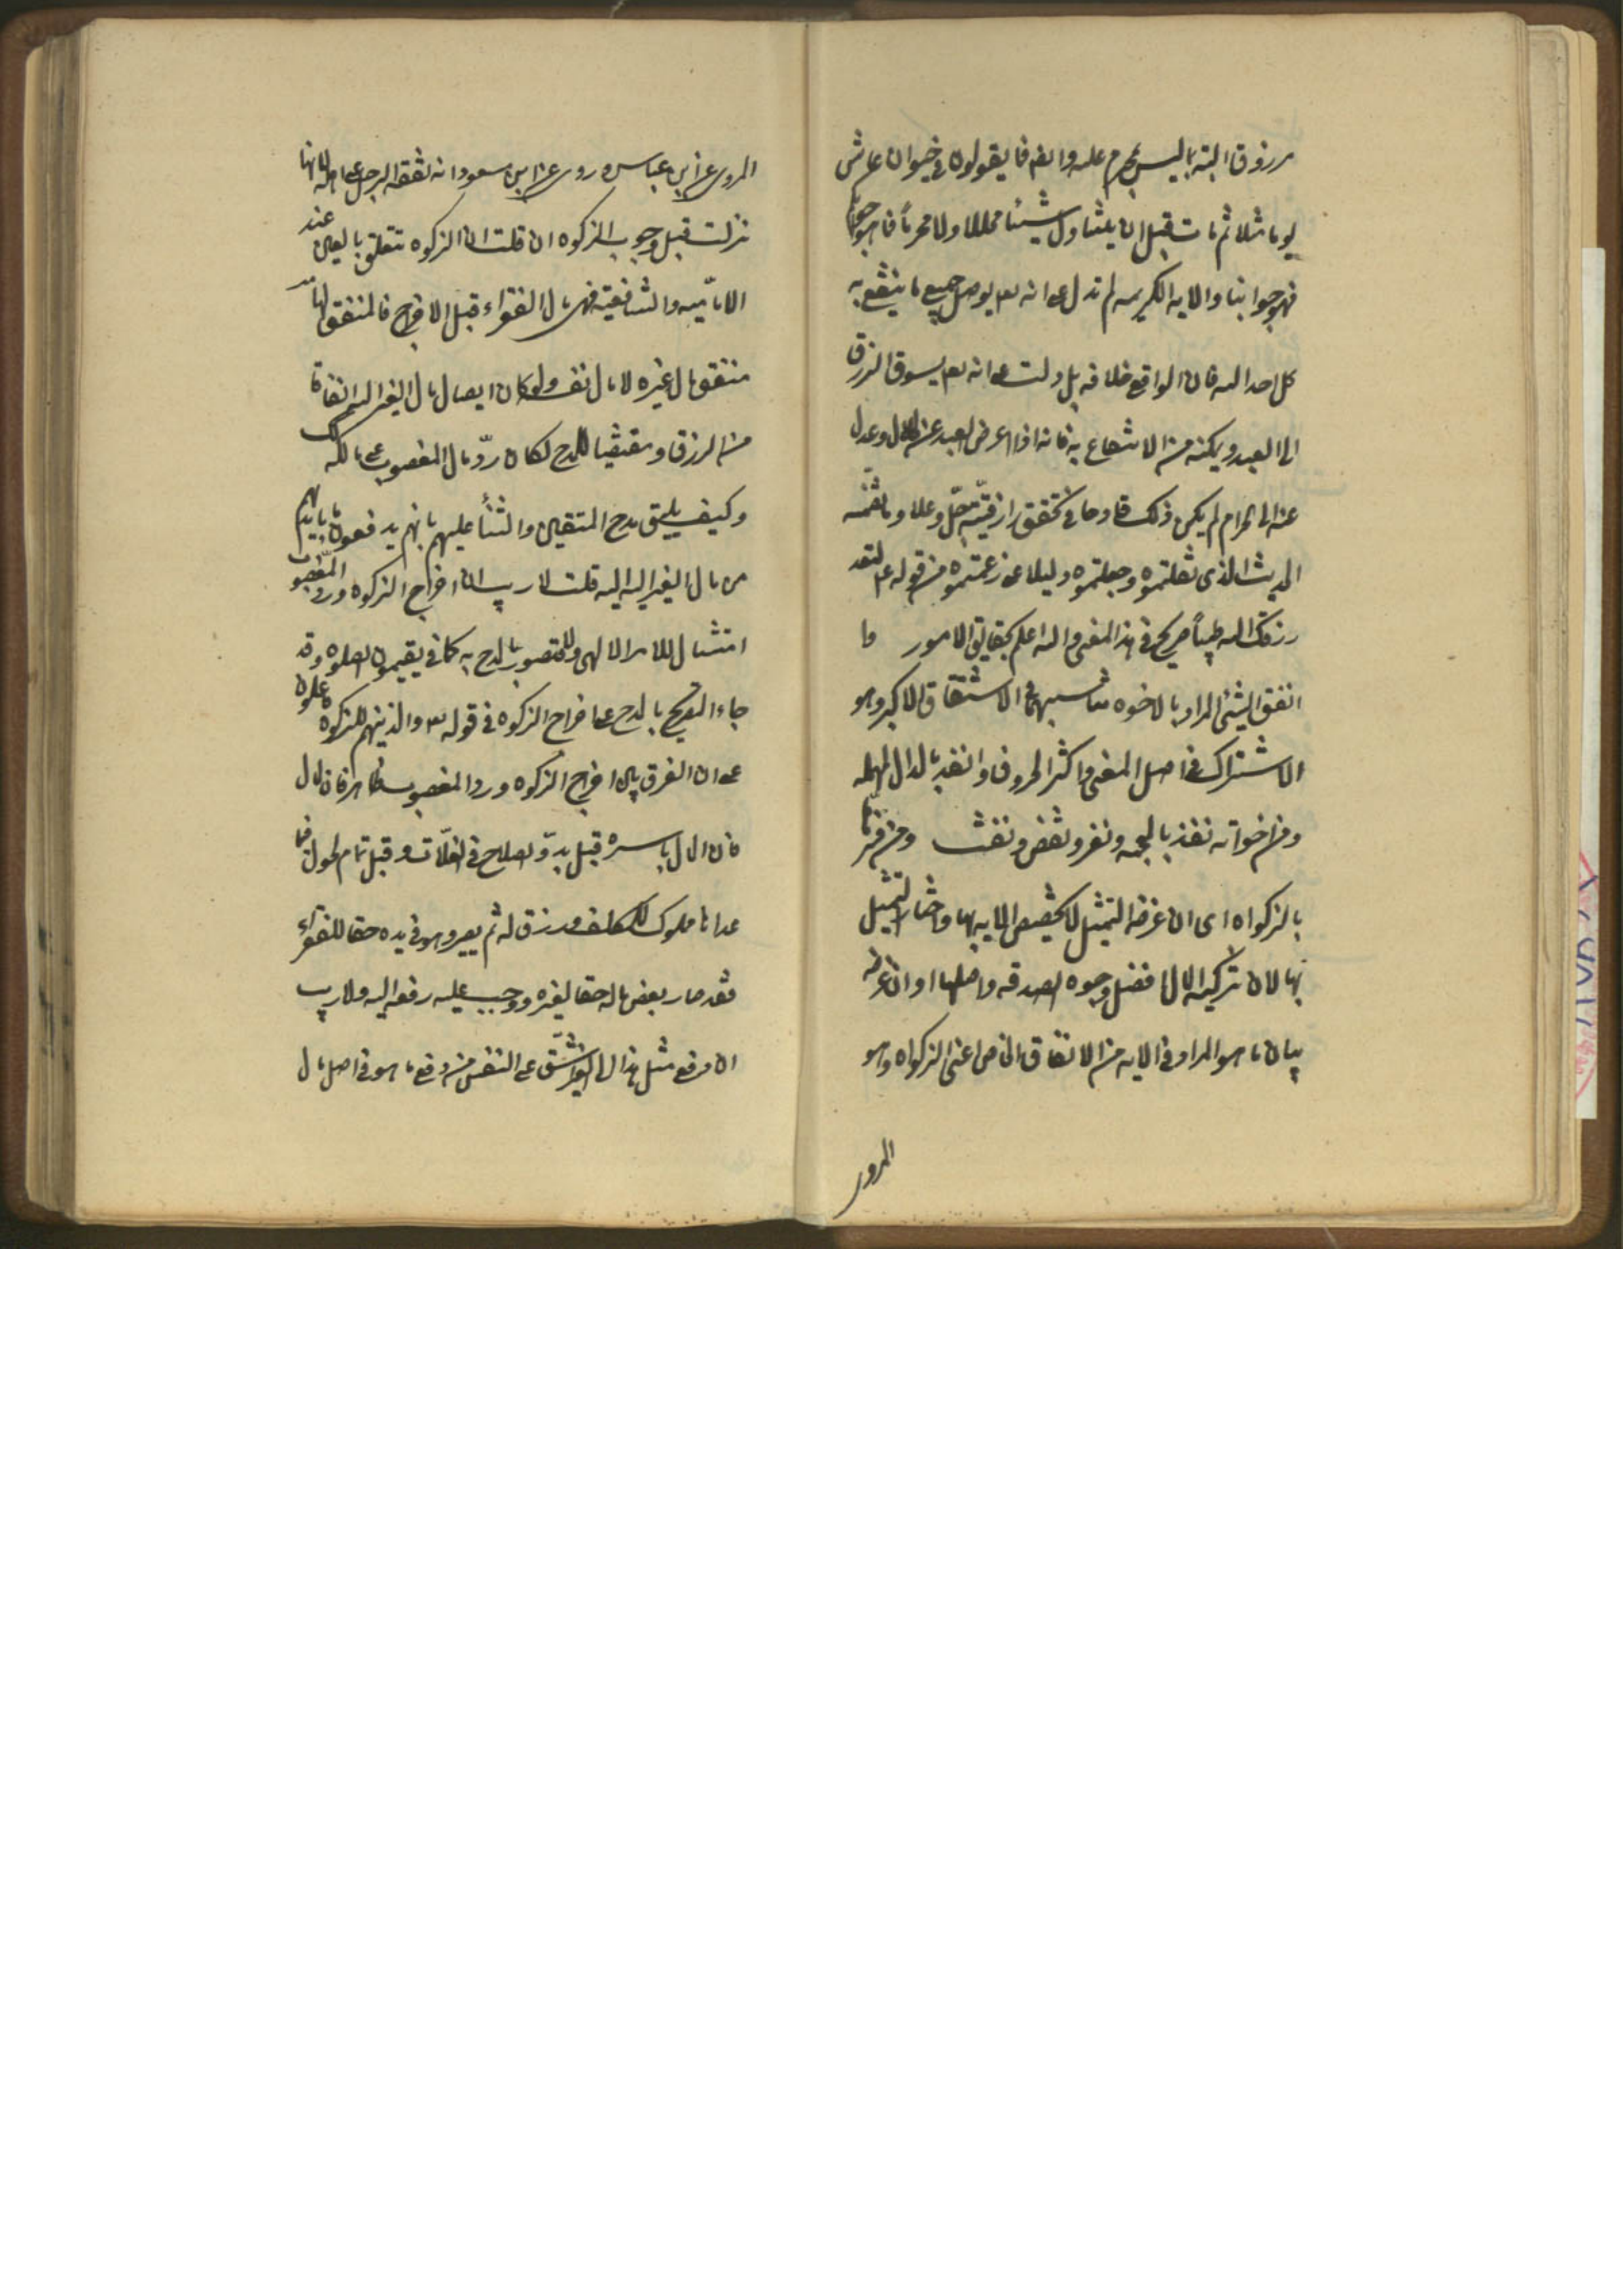 مرزوق البته بما ليس بمحرم عليه وايضه فما يقولون فى حيوان عاش
يوما مثلا ثم مات قبل ان يتناول شيئا محللا ولا محرما فما هو جوابكم
فهو جوابنا والايه الكريمه لم تدل على انه تعم يوصل جميع ما ينتفع به
كل احد اليه فان الواقع خلافه بل دلت على انه تعم يسوق الرزق
الى العبد ويمكنه من الانتفاع به فانه اذا اعرض العبد عن الحلال وعدل
عنه الى الحرام لم يكن ذلك قادحا فى تحقق رازقيته جل وعلا وما تضمنه
الحديث الذى نقلتموه وجعلتموه دليلا على ما زعمتموه من قوله عم لقد
رزقك الله طيبا صريح فى هذا المعنى والله اعلم بحقايق الامور وا
انفق الشئ المراد بالاخوه تناسبهما فى الاشتقاق الاكبر وهو
الاشتراك فى اصل المعنى واكثر الحروف وانفد بالدال المهمله
ومن اخواته نفذ بالمعجمه ونفر ونفض ونفث ومن فسرها
بالزكواه اى ان غرضه التمثيل لا تخصيص الايه بها واختار التمثيل
بها لان تزكيه المال افضل وجوه الصدقه واصلها او ان غرضه
بيان ما هو المراد فى الايه من الانفاق الخاص اعنى الزكواه وهو
المروى
المروى عن ابن عباس وروى عن ابن مسعود انه نفقه الرجل على اهله لانها
نزلت قبل وجوب الزكوه ان قلت ان الزكوه تتعلق بالعين عند
الاماميه والشافعيه فهى مال الفقراء قبل الاخراج فالمنفق لها
منفق مال غيره لا مال نفسه ولو كان ايصال مال الغير اليه انفاقا
من الرزق ومقتضيا للمدح لكان رد مال المغصوب على مالكه كك
وكيف يليق مدح المتقين والثنا عليهم بانهم يدفعون ما بايديهم
من مال الغير اليه قلت لا ريب ان اخراج الزكوه ورد المغصوب
امتثال للامر الالهى ولا قصور بالمدح به كما فى يقيمون الصلوه وقد
جاء التصريح بالمدح على اخراج الزكوه فى قوله تع والذين هم للزكوه فاعلون
على ان الفرق بين اخراج الزكوه ورد المغصوب ظاهر فان المال
فان المال باسره قبل بدو الصلاح فى الغلات وقبل تمام الحول فيما
عداها مملوك للمكلف ورزق له ثم يصير وهو فى يده حقا للفقراء
فقد صار بعض ماله حقا لغيره ووجب عليه رفعه اليه ولا ريب
ان دفع مثل هذا المال الى الغير اشق على النفس من دفع ما هو فى اصل مال